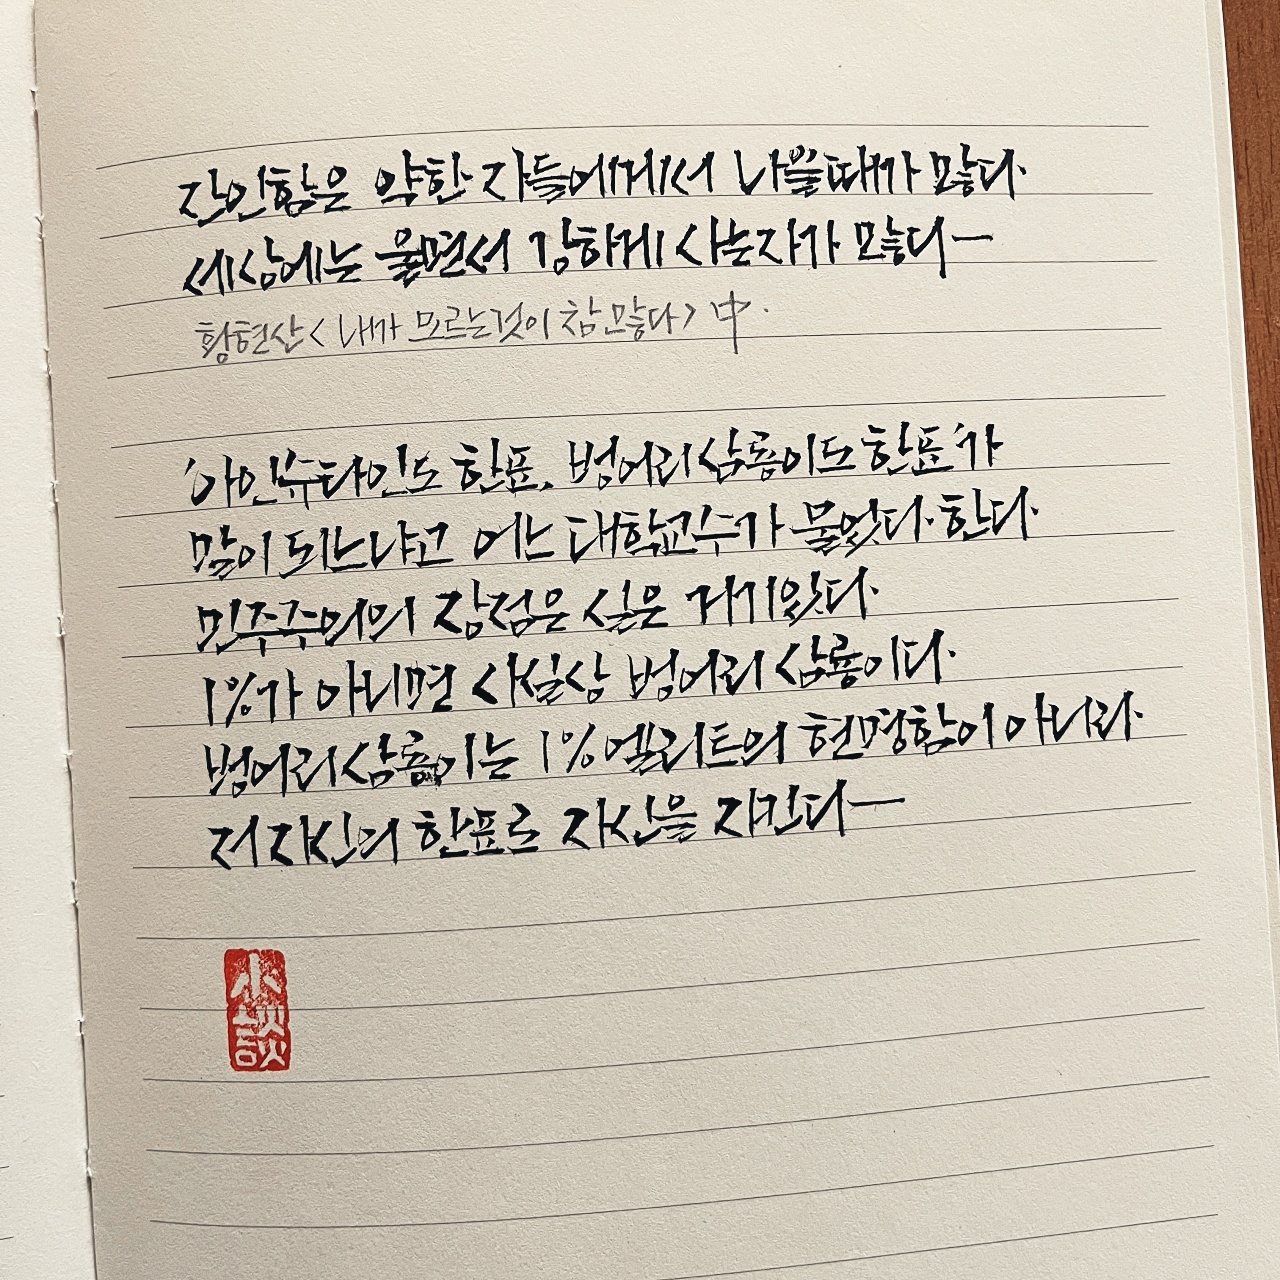 잔인함은 약한 자들에게서 나올때가 많다.
세상에는 울면서 강하게 사는자가 많다—
황현산 < 내가 모르는것이 참 많다 > 中.
'아인슈타인도 한표, 벙어리삼룡이도 한표'가
말이 되느냐고 어느 대학교수가 물었다. 한다.
민주주의의 장점은 실은 거기있다.
1%가 아니면 사실상 벙어리 삼룡이다.
벙어리삼룡이는 1%엘리트의 현명함이 아니라.
저 자신의 한표로 자신을 지킨다—
小談